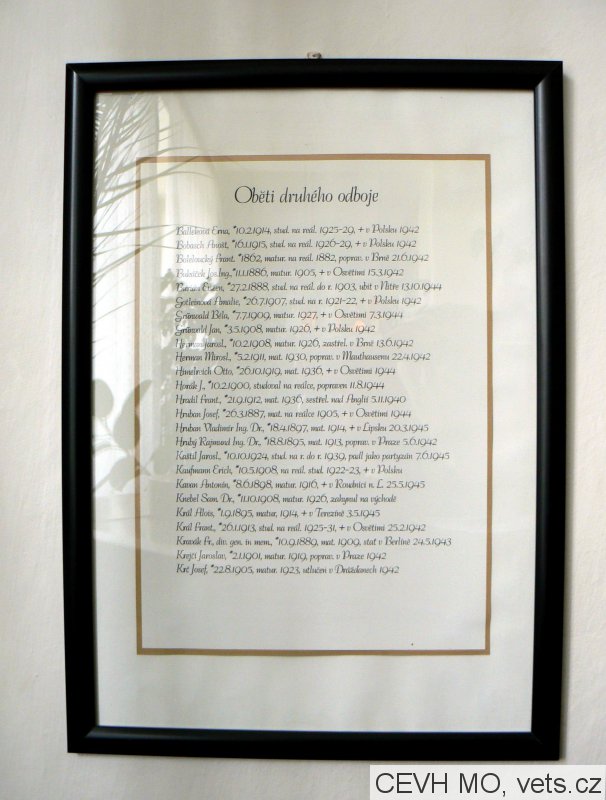 Oběti druhého odboje
Ballenová Erna, *10.2.1914, stud. na reál. 1925-29, + v Polsku 1942
Bobasch Arnošt, *16.1.1915, stud. na reál. 1926-29, + v Polsku 1942
Boleloucký Frant. *1862, matur. na reál. 1882, poprav. v Brně 21.6.1942
Jos. Ing., *11.1.1886, matur. 1905, + v Osvětimi 15.3.1942
*27.2.1888, stud. na reál. do r. 1903, ubit v Nitře 13.10.1944
Amalie, *26.7.1907, stud. na r. 1921-22, + v Polsku 1942
Grünwald Béla, *7.7.1909, matur. 1927, + v Osvětimi 7.3.1944
Grünwald Jan, *3.5.1908, matur. 1926, + v Polsku 1942
Jarosl., *10.2.1908, matur. 1926, zastřel. v Brně 13.6.1942
Herman Mirosl., *5.2.1911, mat. 1930, poprav. v Mauthausenu 22.4.1942
Himelreich Otto, *26.10.1919, mat. 1936, + v Osvětimi 1944
Horák J., *10.2.1900, studoval na reálce, popraven 11.8.1944
Hradil Frant., *21.9.1912, mat. 1936, sestřel. nad Anglií 5.11.1940
Hruban Josef, *26.3.1887, mat. na reálce 1905, + v Osvětimi 1944
Hruban Vladimír Ing. Dr., *18.4.1897, mat. 1914, + v Lipsku 20.3.1945
Hrubý Rajmund Ing. Dr., *18.8.1895, mat. 1913, poprav. v Praze 5.6.1942
Kaštil Jarosl., *10.10.1924, stud. na r. do r. 1939, padl jako partyzán 7.6.1945
Kaufmann Erich, *10.5.1908, na reál. stud. 1922-23, + v Polsku
Kavan Antonín, *8.6.1898, matur. 1916, + v Roudnici n. L. 25.5.1945
Knebel Sam. Dr., *11.10.1908, matur. 1926, zahynul na východě
Král Alois, *1.9.1895, matur, 1914, + v Terezíně 3.5.1945
Král Frant., *26.1.1913, stud. na reál. 1925-31, + v Osvětimi 25.2.1942
Kravák Fr., div. gen. in mem., *10.9.1889, mat. 1909, sťat v Berlíně 24.5.1943
Krejčí Jaroslav, *2.1.1901, matur. 1919, poprav. v Praze 1942
Krč Josef, *22.8.1905, matur. 1923, utlučen v Drážďanech 1942
CEVH MO, vets.cz